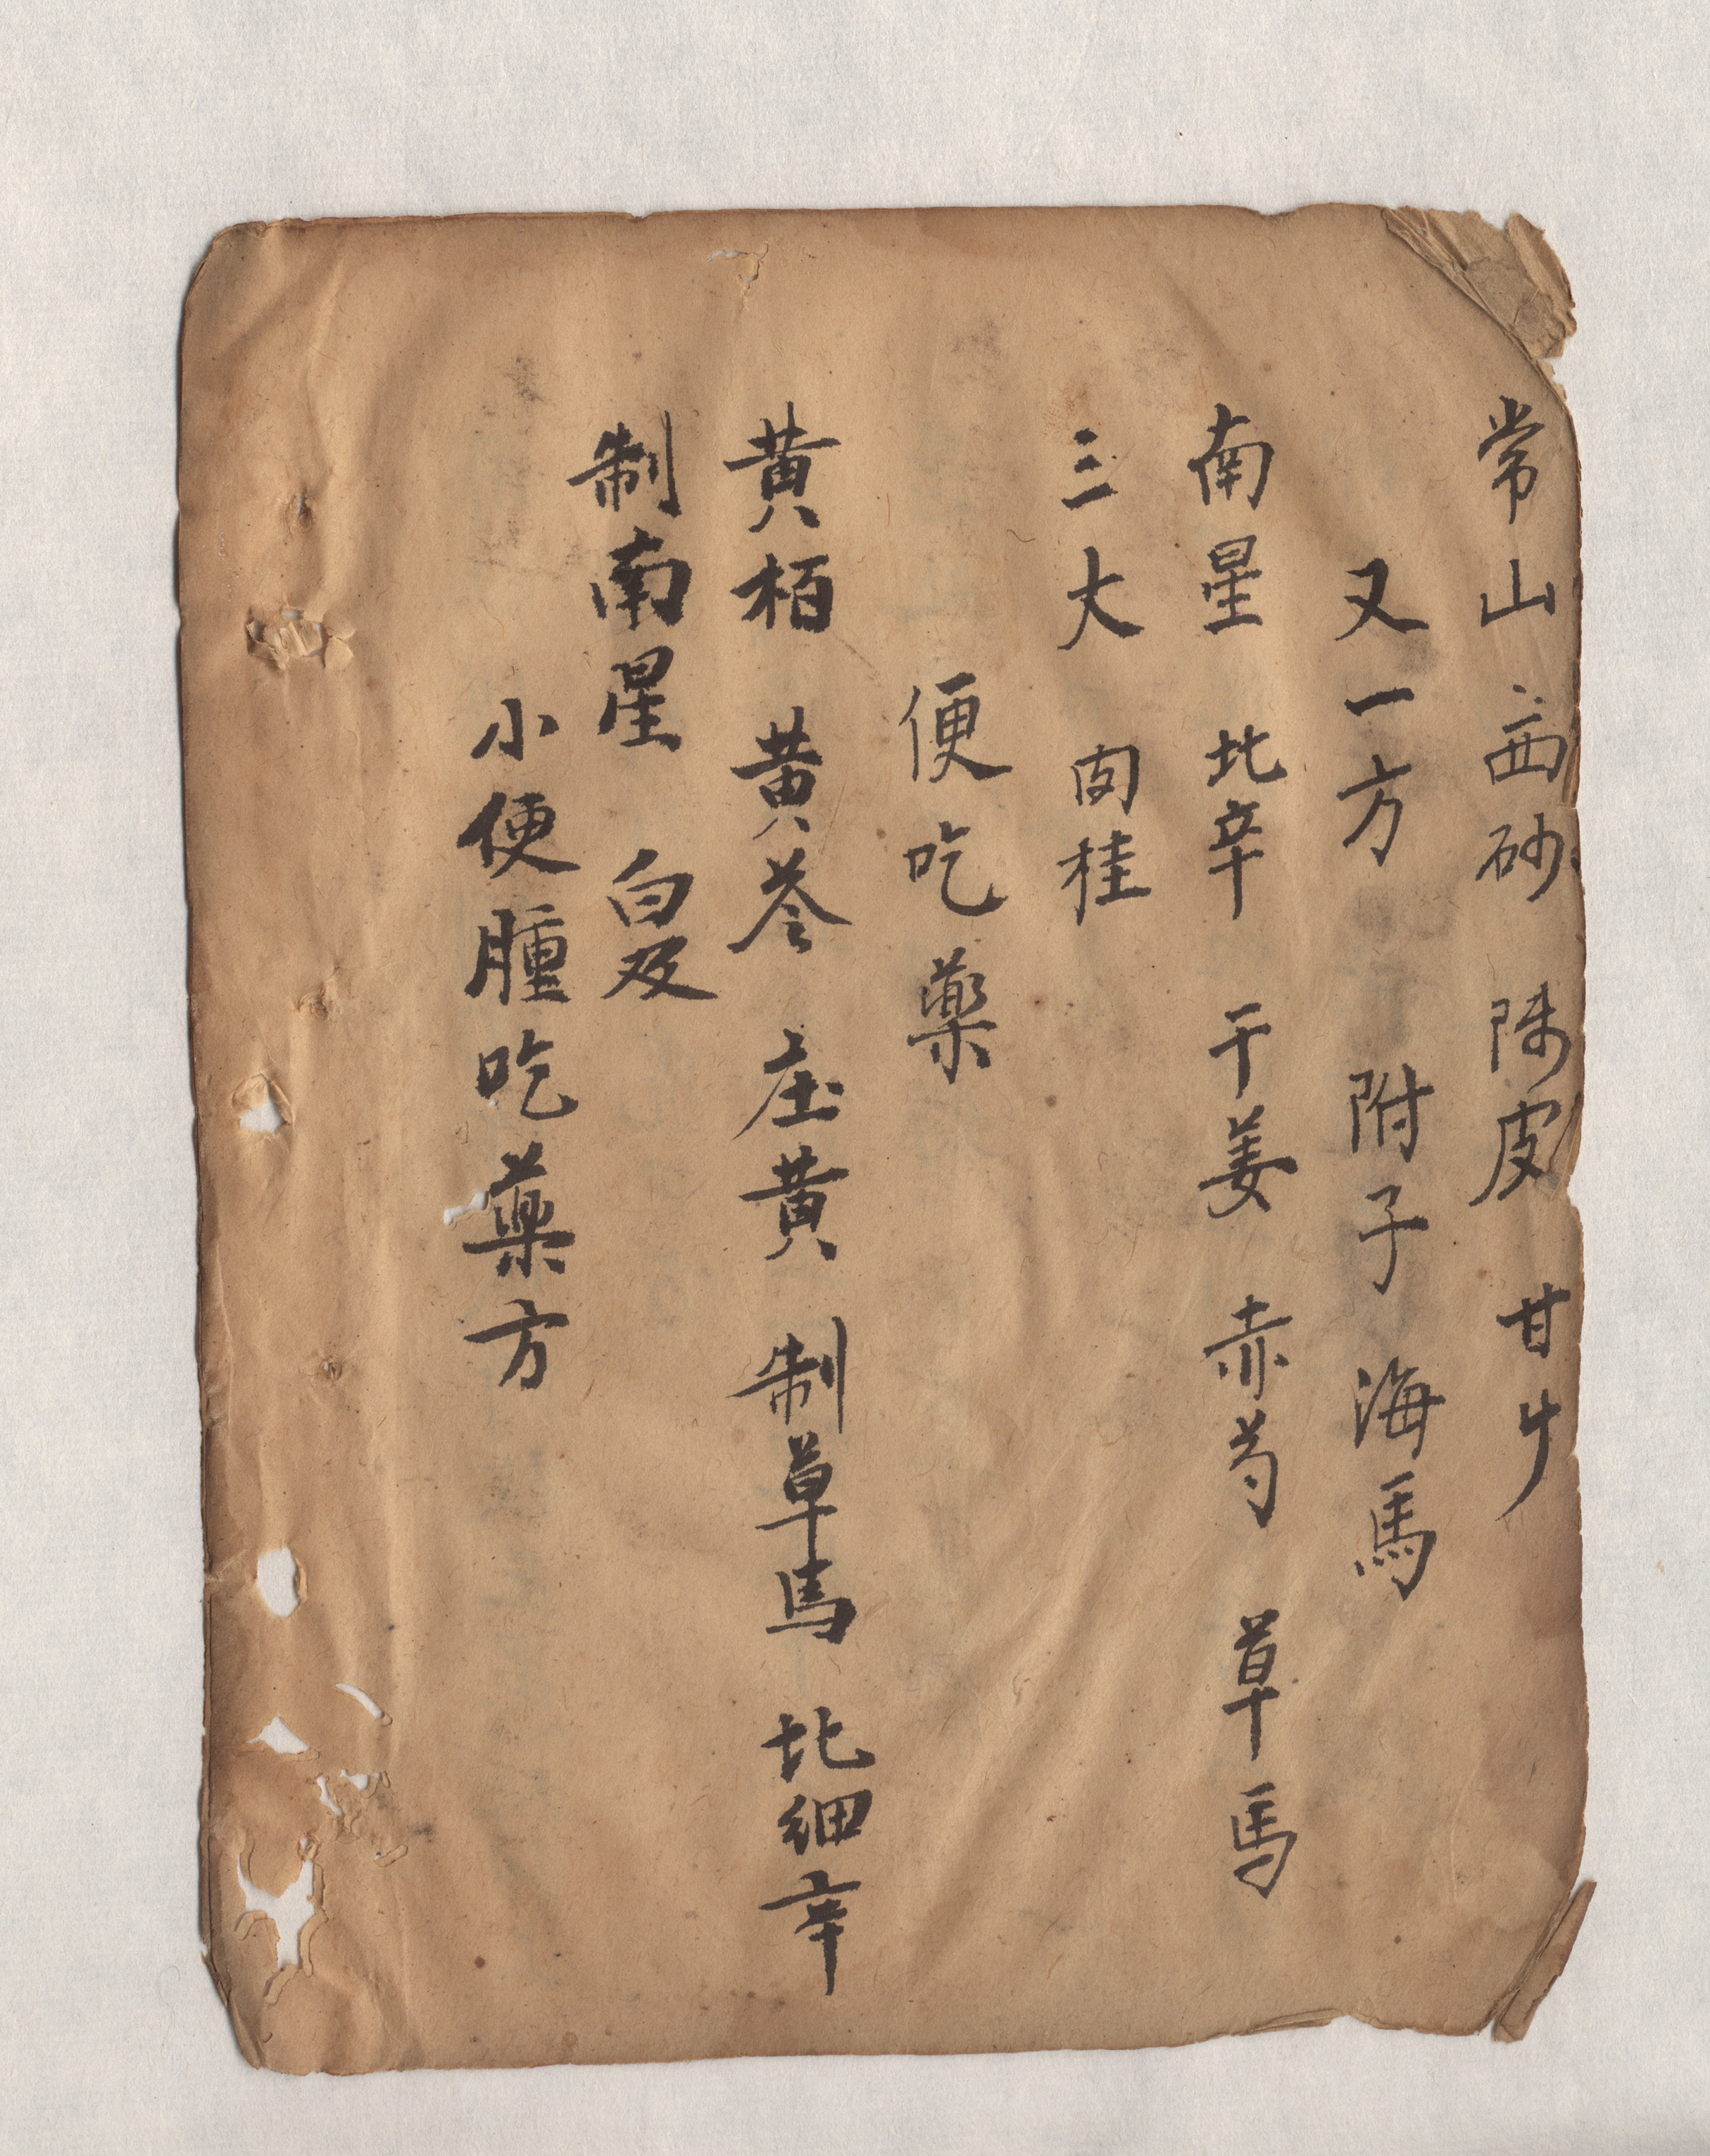 常山 西砂 陳皮 甘艹
又一方 附子 海馬
南星 北辛 干姜 赤芍 草馬
三大 肉桂
便吃藥
黄栢 黄芩 庄黄 制草馬 北细辛
制南星 白及
小便腫吃藥方